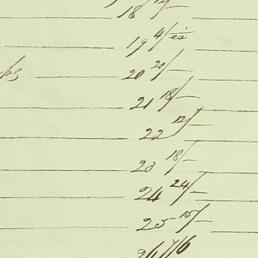 18 12/-
19 4/
20 20/-
21 18/-
22 12/-
23 18/-
24 24/-
25 15/-
26 7/6